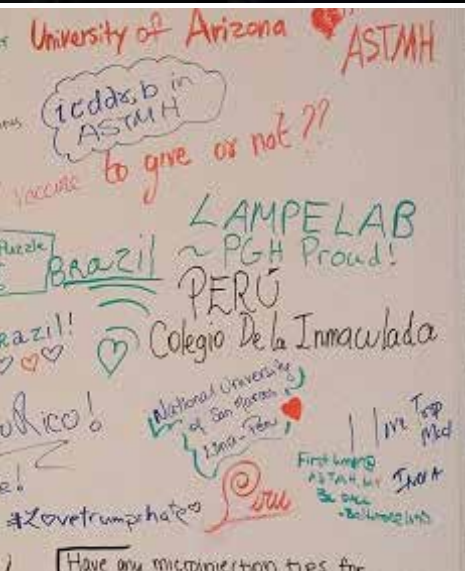 University of Arizona
ASTMH
icddr,b in
ASTMH
vaccine to give or not??
LAMPELAB
~ PGH Proud!
Puzzle
BRazil
PERÚ
Colegio De la Inmaculada
Razil!
National University
of San Marcos
Lima-Perú
oRico!
I love Trop
Med
First timer@
ASTMH,
INDIA
e!
#Lovetrumpshate
Peru
Have any microinjection tips for